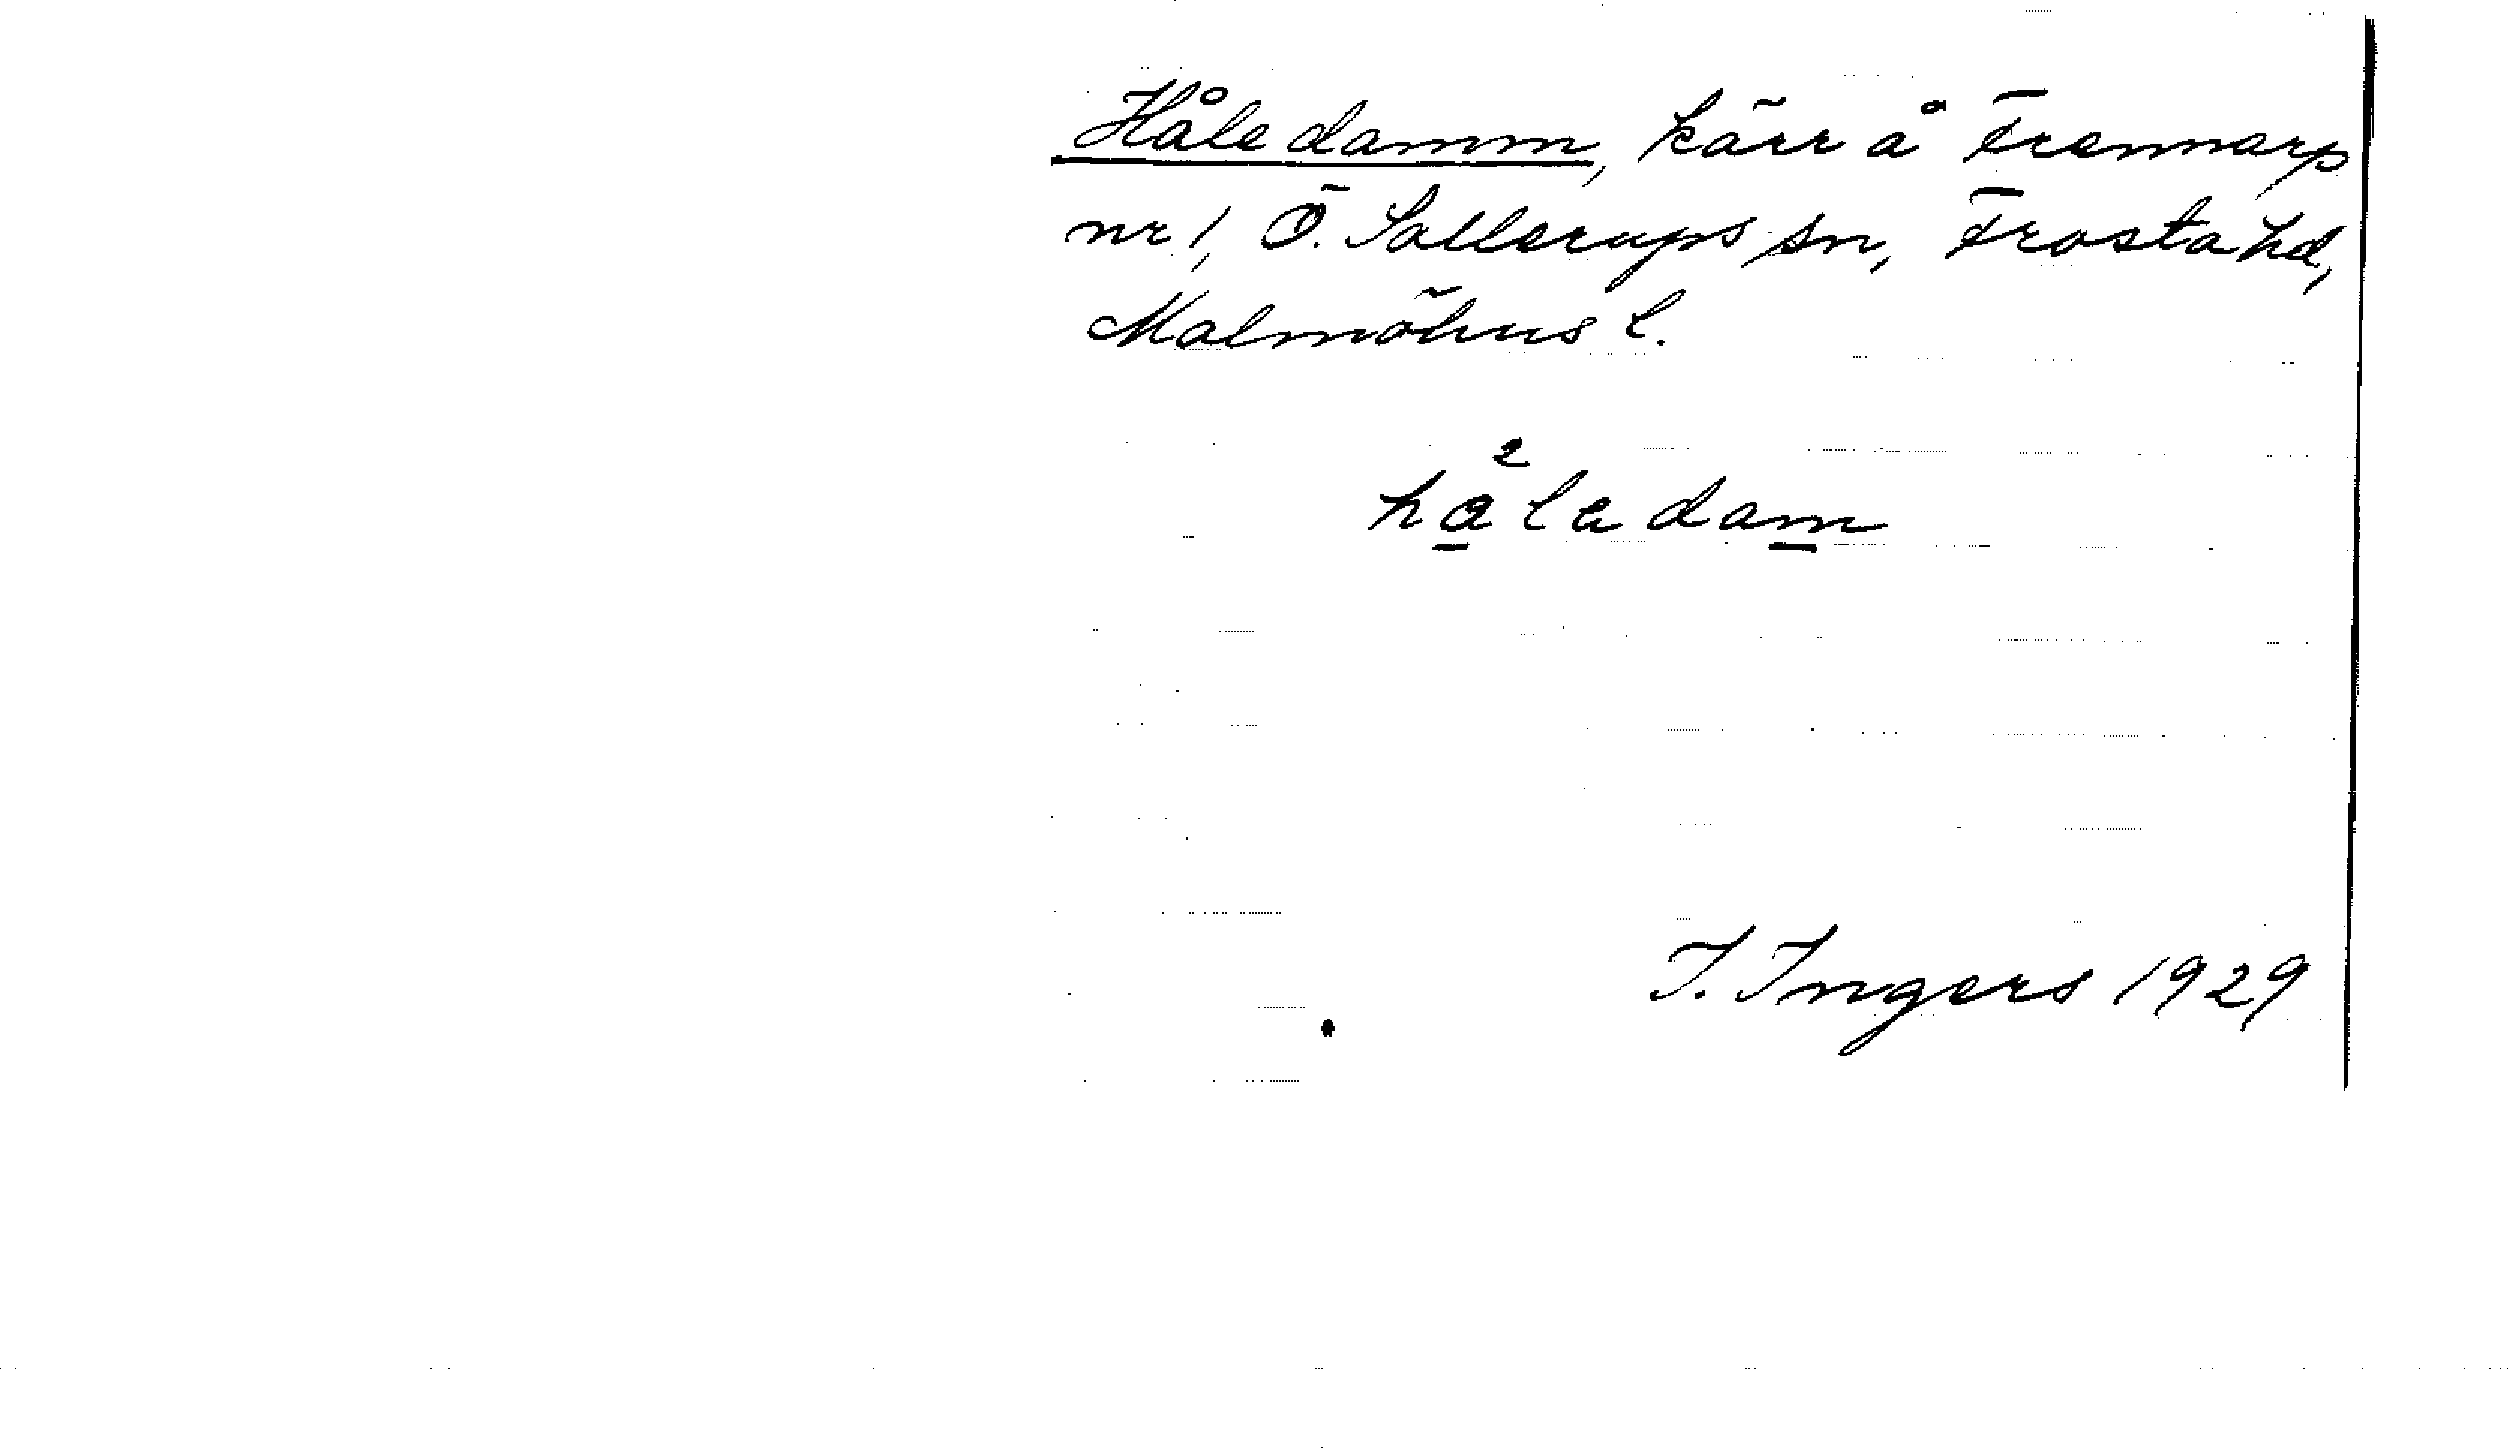 Håledamm, kärr å Fremmarp
nr 1, Ö. Sallerups sn, Frosta hd,
Malmöhus l.
hå²ledam
I. Ingers 1929